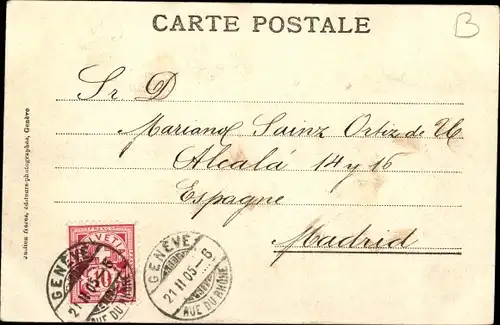 CARTE POSTALE
B
Sr D
Mariano Sainz Ortiz de U
Alcalá 14 y 16
Espagne
Madrid
Jullien frères, éditeurs-photographes, Genève
FRANCO
HELVETIA
10
GENÈVE
21 II 05
RUE DU RHÔNE
GENÈVE
21 II 05 - 6
RUE DU RHÔNE